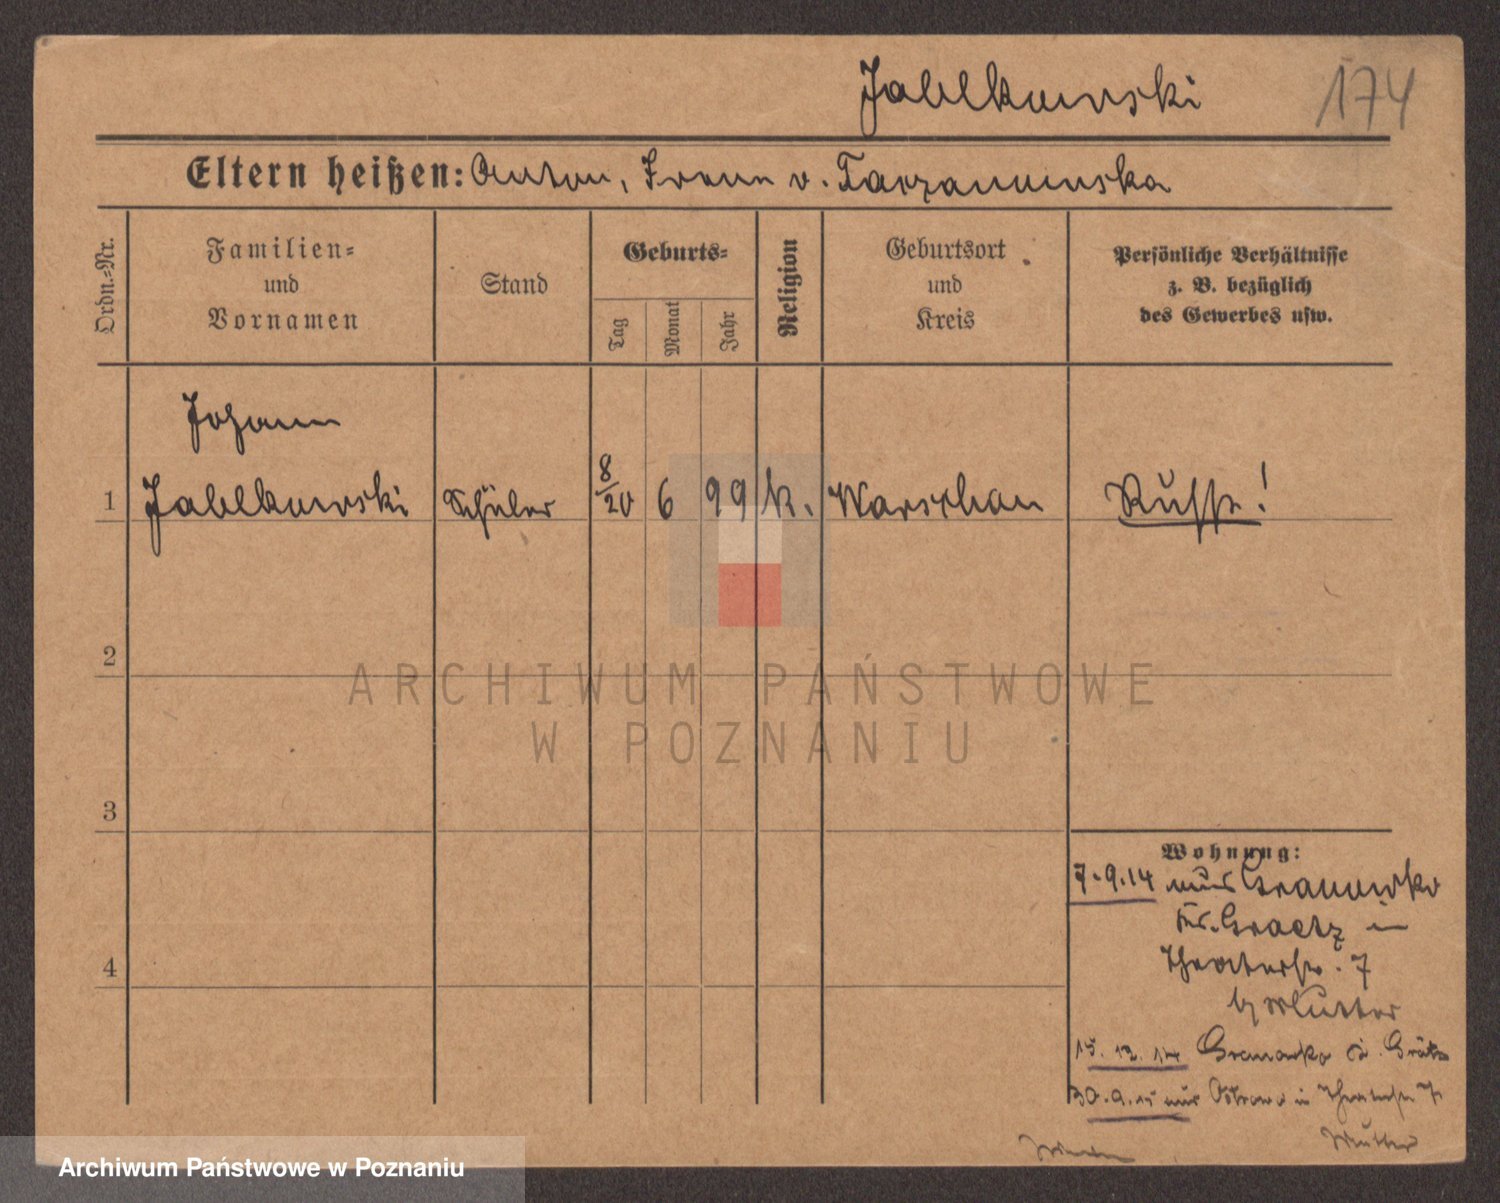 Jablkowski 174
Eltern heißen: Anton, Irene v. Tarzanowska
Ordn.=Nr.
Familien=
und
Vornamen
Stand
Geburts=
Tag
Monat
Jahr
Religion
Geburtsort
und
Kreis
Persönliche Verhältnisse
z. B. bezüglich
des Gewerbes usw.
Johann
1 Jablkowski Schüler 8/20 6 99 k. Warschau Russe!
2
ARCHIWUM PAŃSTWOWE
W POZNANIU
3
Wohnung:
7.9.14 aus Granowko
Kr. Graetz in
Theaterstr. 7
b/ Mutter
15.12.14 Granowko b. Grätz
30.9.15 aus Ostrowo in Theaterstr 7
Mutter
4
Archiwum Państwowe w Poznaniu